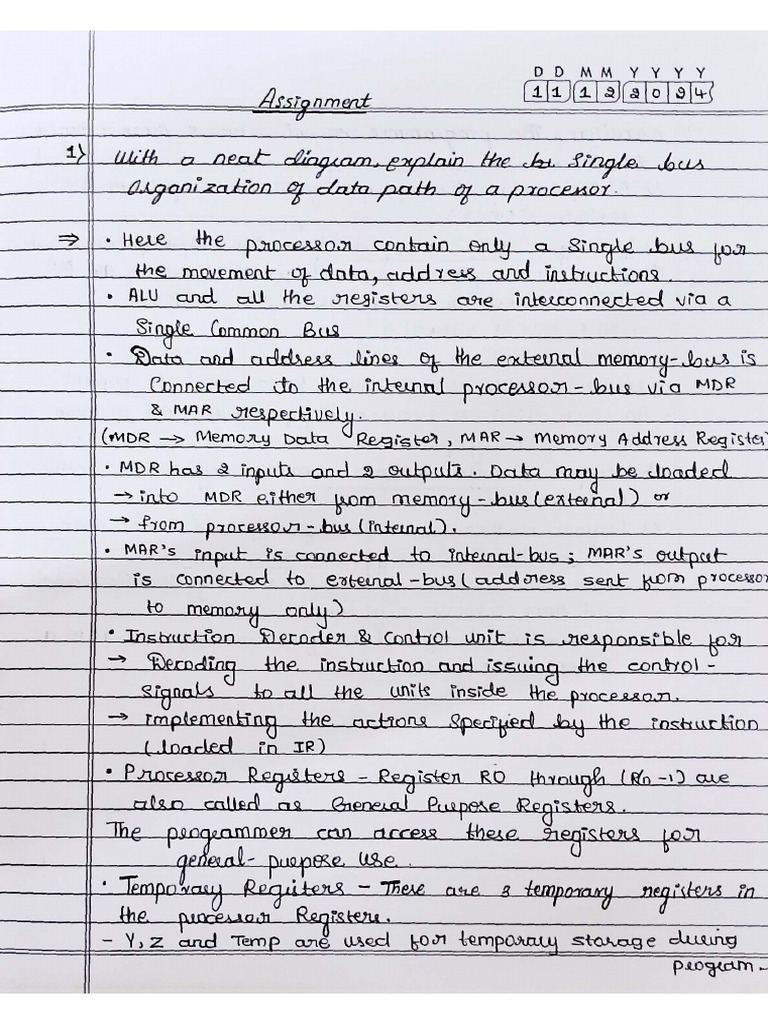 D D M M Y Y Y Y
Assignment 1 1 1 2 2 0 2 4
1) With a neat diagram, explain the single bus
Organization of data path of a processor.
⇒ • Here the processor contain only a single bus for
the movement of data, address and instructions.
• ALU and all the registers are interconnected via a
Single Common Bus
• Data and address lines of the external memory-bus is
Connected to the internal processor-bus via MDR
& MAR respectively.
(MDR → Memory Data Register, MAR → Memory Address Register)
• MDR has 2 inputs and 2 outputs. Data may be loaded
→ into MDR either from memory-bus (external) or
→ from processor-bus (internal).
• MAR's input is connected to internal-bus; MAR's output
is connected to external-bus (address sent from processor
to memory only)
• Instruction Decoder & Control unit is responsible for
→ Decoding the instruction and issuing the control-
signals to all the units inside the processor.
→ implementing the actions specified by the instruction
(loaded in IR)
• Processor Registers - Register R0 through (Rn-1) are
also called as General Purpose Registers.
The programmer can access these registers for
general-purpose use.
• Temporary Registers - These are 3 temporary registers in
the processor Registers.
- Y, Z and Temp are used for temporary storage during
program-